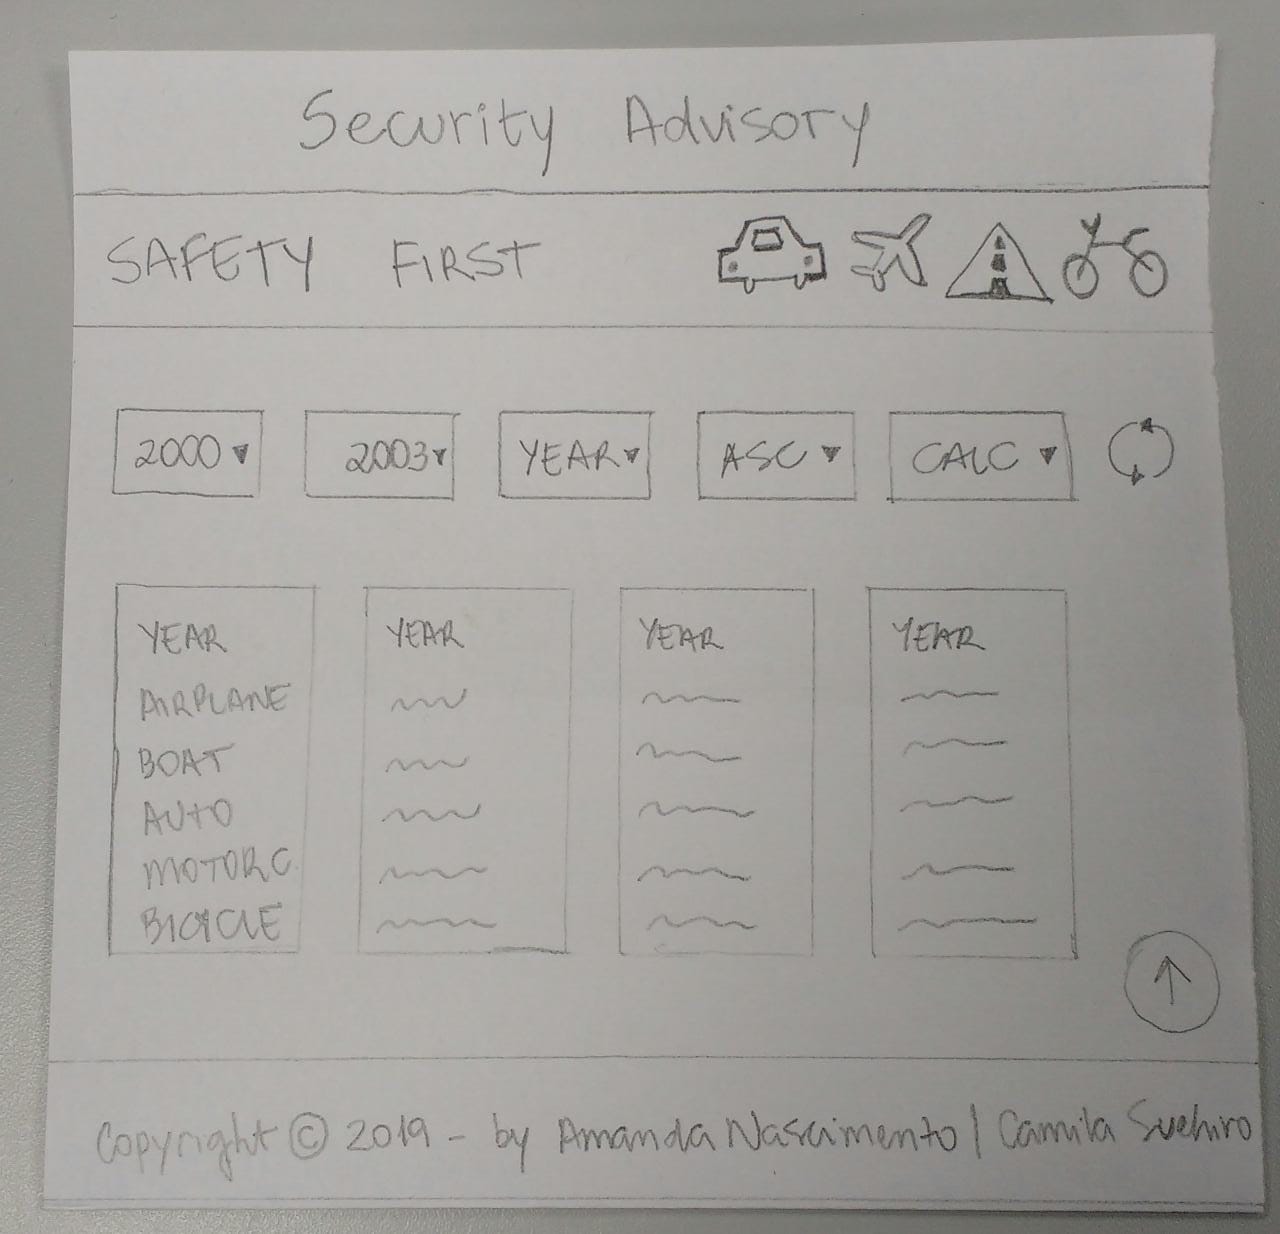 Security Advisory
SAFETY FIRST
2000 2003 YEAR ASC CALC
YEAR YEAR YEAR YEAR
AIRPLANE
BOAT
AUTO
MOTORC.
BICYCLE
Copyright © 2019 - by Amanda Nascimento | Camila Suehiro